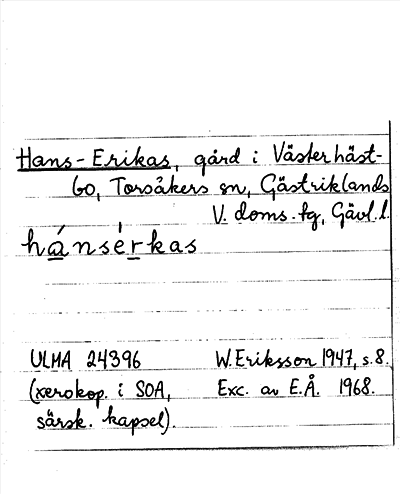 Hans-Erikas, gård i Västerhäst-
bo, Torsåkers sn, Gästriklands
V. doms. tg, Gävl. l.
hánsérkas
ULMA 24396
W. Eriksson 1947, s. 8.
(xerokop. i SOA,
Exc. av E.Å. 1968.
särsk. kapsel).